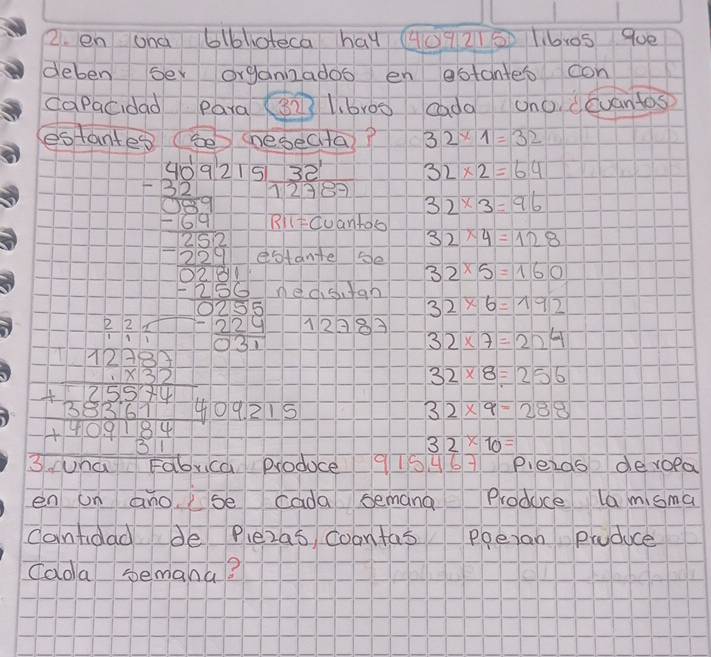 2. en una biblioteca hay 409215 libros que
deben ser organizados en estantes con
capacidad para 32 libros cada uno. ¿cuantos
estantes se nesecita?
409215 32
- 32 12787
089
- 64 R//= cuantos
252
- 224 estante se
0281
- 256 necisitan
0255
- 224 12787
031
2 2
1 1 1
12787
x 32
+ 25574
38361 409215
+ 409184
31
32 x 1 = 32
32 x 2 = 64
32 x 3 = 96
32 x 4 = 128
32 x 5 = 160
32 x 6 = 192
32 x 7 = 224
32 x 8 = 256
32 x 9 = 288
32 x 10 =
3. una Fabrica produce 915.467 piezas de ropa
en un año. ¿ se cada semana Produce la misma
cantidad de Piezas, coantas produce
cada semana?